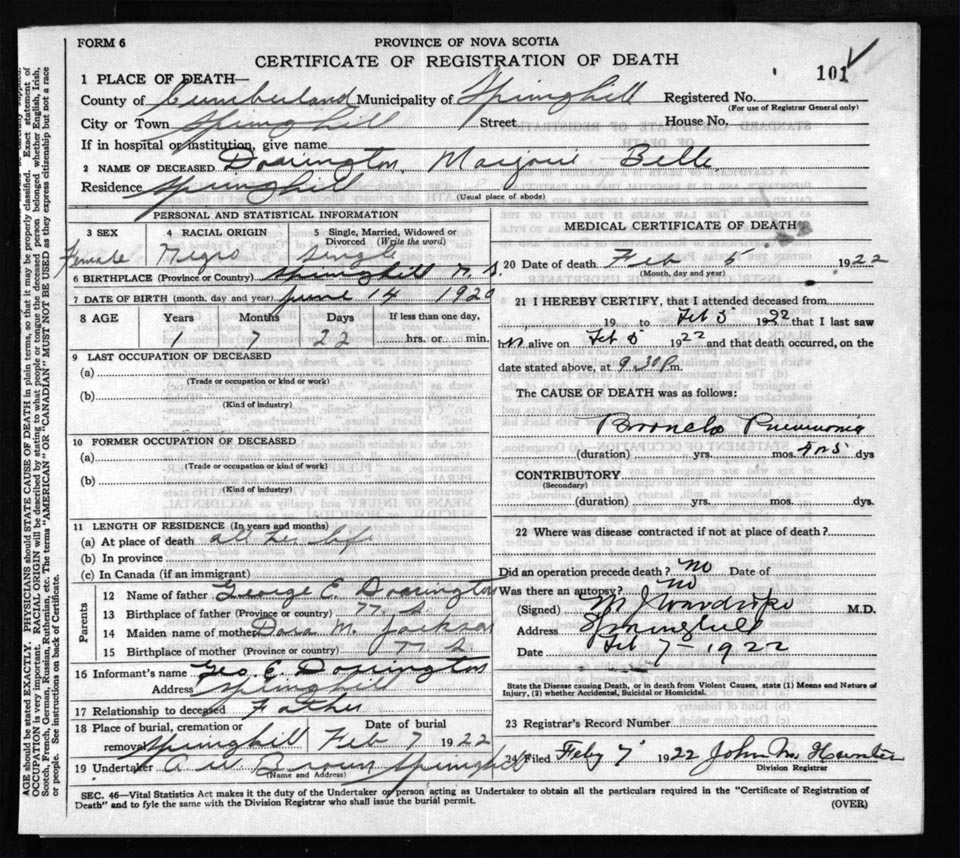 FORM 6
PROVINCE OF NOVA SCOTIA
CERTIFICATE OF REGISTRATION OF DEATH
101
1 PLACE OF DEATH—
County of Cumberland Municipality of Springhill Registered No.
(For use of Registrar General only)
City or Town Springhill Street House No.
If in hospital or institution, give name
2 NAME OF DECEASED Dorrington, Marjorie Belle
Residence Springhill
(Usual place of abode)
PERSONAL AND STATISTICAL INFORMATION
3 SEX 4 RACIAL ORIGIN 5 Single, Married, Widowed or Divorced (Write the word)
Female Negro Single
6 BIRTHPLACE (Province or Country) Springhill N.S.
7 DATE OF BIRTH (month, day and year) June 14 1920
8 AGE Years Months Days If less than one day,
1 7 22 hrs. or min.
9 LAST OCCUPATION OF DECEASED
(a)
(Trade or occupation or kind or work)
(b)
(Kind of industry)
10 FORMER OCCUPATION OF DECEASED
(a)
(Trade or occupation or kind of work)
(b)
(Kind of industry)
11 LENGTH OF RESIDENCE (In years and months)
(a) At place of death all her life
(b) In province
(c) In Canada (if an immigrant)
Parents
12 Name of father George E. Dorrington
13 Birthplace of father (Province or country) N.S.
14 Maiden name of mother Dora M. Jackson
15 Birthplace of mother (Province or country) N.S.
16 Informant's name Geo. E. Dorrington
Address Springhill
17 Relationship to deceased Father
18 Place of burial, cremation or removal Springhill Date of burial Feb 7 1922
19 Undertaker A W Brown Springhill
(Name and Address)
MEDICAL CERTIFICATE OF DEATH
20 Date of death Feb 5 1922
(Month, day and year)
21 I HEREBY CERTIFY, that I attended deceased from
19 to Feb 5 1922 that I last saw
alive on Feb 5 1922 and that death occurred, on the
date stated above, at 9.30 P.m.
The CAUSE OF DEATH was as follows:
Broncho Pneumonia
(duration) yrs. mos. 4 or 5 dys
CONTRIBUTORY
(Secondary)
(duration) yrs. mos. dys.
22 Where was disease contracted if not at place of death?
Did an operation precede death? no Date of
Was there an autopsy? no
(Signed) M J Wardrope M.D.
Address Springhill
Date Feb 7 - 1922
State the Disease causing Death, or in death from Violent Causes, state (1) Means and Nature of
Injury, (2) whether Accidental, Suicidal or Homicidal.
23 Registrar's Record Number
24 Filed Feby 7 1922 John M Hunter
Division Registrar
SEC. 46—Vital Statistics Act makes it the duty of the Undertaker or person acting as Undertaker to obtain all the particulars required in the "Certificate of Registration of
Death" and to fyle the same with the Division Registrar who shall issue the burial permit.
(OVER)
AGE should be stated EXACTLY. PHYSICIANS should STATE CAUSE OF DEATH in plain terms, so that it may be properly classified. Exact statement of
OCCUPATION is very important. RACIAL ORIGIN will be described by stating to what people or tongue the deceased person belonged whether English, Irish,
Scotch, French, German, Russian, Ruthenian, etc. The terms "AMERICAN" OR "CANADIAN" MUST NOT BE USED as they express citizenship but not a race
or people. See instructions on back of Certificate.